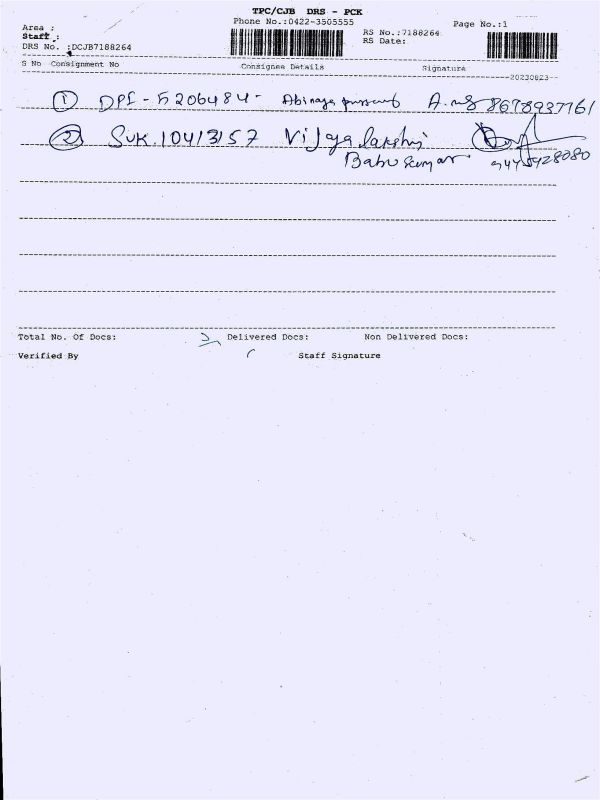 TPC/CJB DRS - PCK
Phone No.:0422-3505555
Page No.:1
Area :
Staff :
DRS No. :DCJB7188264
RS No.:7188264
RS Date:
S No Consignment No Consignee Details Signature
20230823
1 DPI - 5206484 - Abinaya 8678937161
2 SUK.10413157 Vijaya lakshmi
Babu kumar
Total No. Of Docs: 2 Delivered Docs: Non Delivered Docs:
Verified By Staff Signature